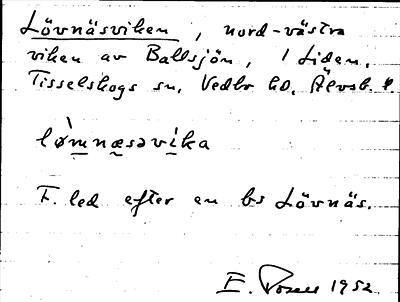 Lövnäsviken, nord-västra
viken av Ballsjön, 1 Liden.
Tisselskogs sn, Vedbo hd, Älvsb. l.
lø̀mnæsəvika
F. led efter en bs Lövnäs.
E. 1952